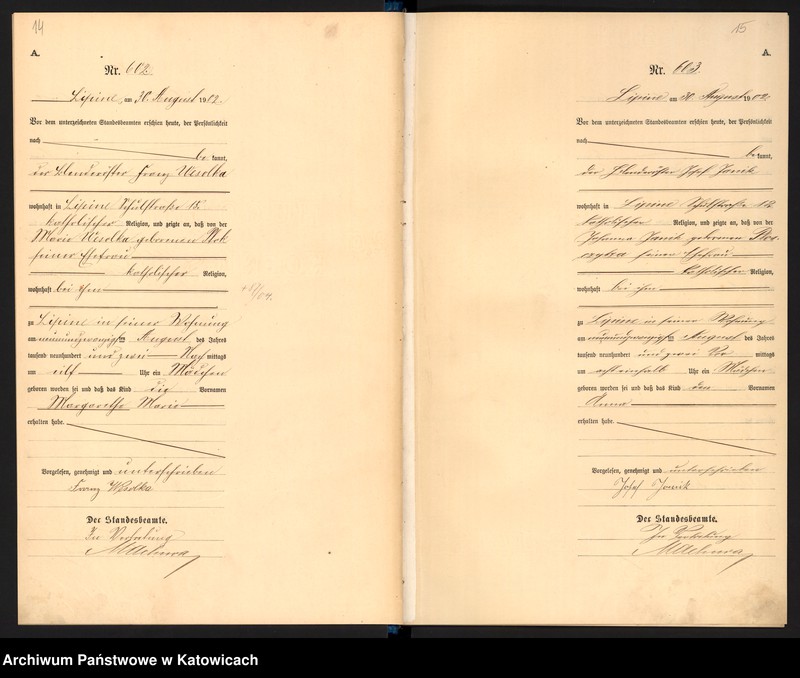 14
A.
Nr. 602.
Lipine, am 30. August 1902.
Vor dem unterzeichneten Standesbeamten erschien heute, der Persönlichkeit
nach
be kannt,
der Franz Wesolka
wohnhaft in Lipine Schulstraße
katholischer Religion, und zeigte an, daß von der
Marie Wesolka geborenen
seiner Ehefrau
katholischer Religion,
wohnhaft bei ihm
zu Lipine in seiner Wohnung
am neunundzwanzigsten August des Jahres
tausend neunhundert und zwei Nach mittags
um eilf Uhr ein Mädchen
geboren worden sei und daß das Kind die Vornamen
Margarethe Marie
erhalten habe.
Vorgelesen, genehmigt und unterschrieben
Franz Wesolka
Der Standesbeamte.
In Vertretung
15
A.
Nr. 603.
Lipine am 30. August 1902.
Vor dem unterzeichneten Standesbeamten erschien heute, der Persönlichkeit
nach
be kannt,
der Josef Janik
wohnhaft in Lipine Schulstraße
katholischer Religion, und zeigte an, daß von der
Johanna Janik geborenen
seiner Ehefrau
katholischer Religion,
wohnhaft bei ihm
zu Lipine in seiner Wohnung
am neunundzwanzigsten August des Jahres
tausend neunhundert und zwei Vor mittags
um acht einhalb Uhr ein Mädchen
geboren worden sei und daß das Kind den Vornamen
Anna
erhalten habe.
Vorgelesen, genehmigt und unterschrieben
Josef Janik
Der Standesbeamte.
In Vertretung
Archiwum Państwowe w Katowicach